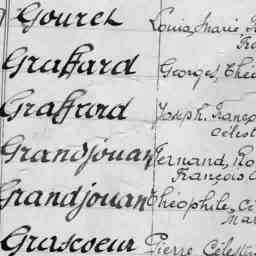 Gouret Louis, Marie,
Graffard Georges, Thé
Graffrord Joseph, Franço
Célest
Grandjouan Fernand, Ro
François, C
Grandjouan Théophile, Cé
Mar
Grascoeur Pierre, Célesti